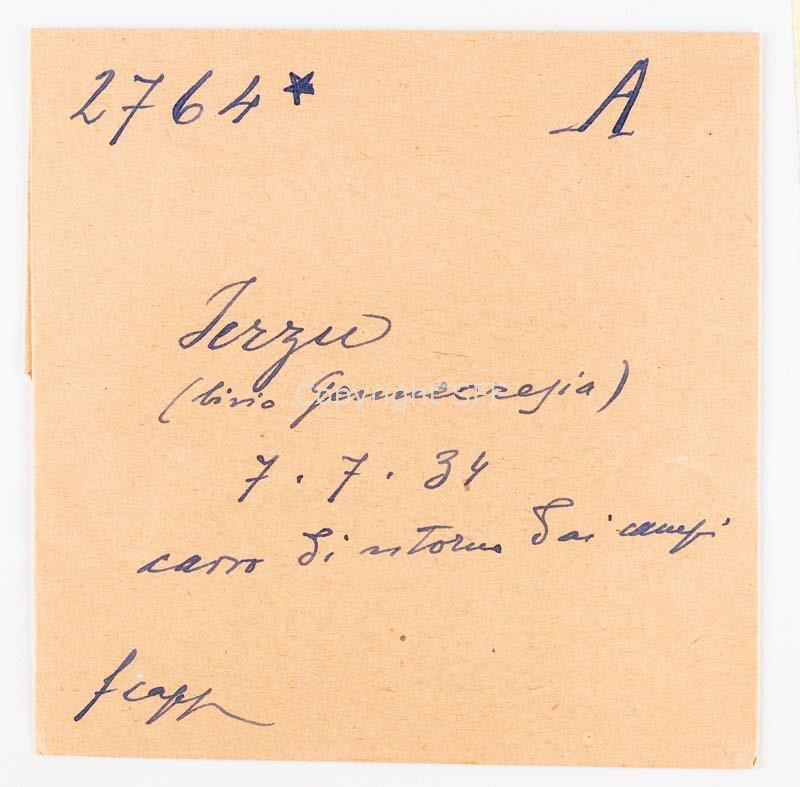 2764* A
Jerzu
(bivio Gennacresia)
7.7.34
carro di ritorno dai campi
fcapp